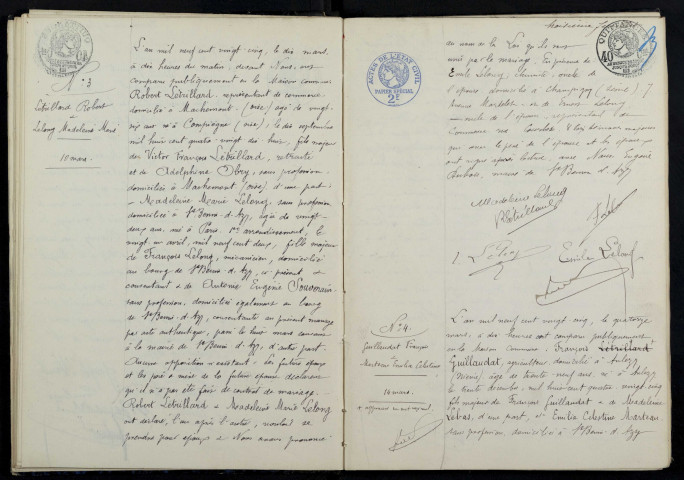 N° 3
Létrillard Robert
et
Lelong Madeleine Marie
10 mars.
L'an mil neuf cent vingt cinq, le dix mars
à dix heures du matin, devant Nous, ont
comparu publiquement en la Maison commune
Robert Létrillard, représentant de commerce
domicilié à Machemont (oise) âgé de vingt-
six ans né à Compiègne (oise), le dix septembre
mil huit cent quatre vingt dix huit, fils majeur
de Victor François Létrillard, retraité
et de Adolphine Obry, sans profession,
domiciliés à Machemont (oise) d'une part
- Madeleine Marie Lelong, sans profession
domiciliée à St Benin-d'Azy, âgée de vingt-
deux ans, née à Paris arrondissement, le
vingt un avril, mil neuf cent deux, fille majeure
de François Lelong, mécanicien, domicilié
au bourg de St Benin-d'Azy, ci présent et
consentant & de Antonie Eugénie Souvenain,
sans profession, domiciliée également au bourg
de St Benin-d'Azy, consentante au présent mariage
par acte authentique, passé le huit mars courant
à la mairie de St Benin-d'Azy, d'autre part.
Aucune opposition n'existant. Les futurs époux
et les père & mère de la future épouse déclarent
qu'il n'a pas été fait de contrat de mariage.
Robert Létrillard & Madeleine Marie Lelong
ont déclaré, l'un après l'autre, vouloir se
prendre pour époux & Nous avons prononcé
ACTES DE L'ETAT CIVIL
PAPIER SPÉCIAL
2F
au nom de la Loi qu'ils sont
unis par le mariage. En présence de
Emile Lelong, oncle de
l'épouse domicilié à Champigny (Seine) 7
avenue & de Lelong
oncle de l'époux, représentant de
Commerce rue témoins majeurs
qui avec le père de l'épouse et les époux
ont signé après lecture, avec Nous Eugène
maire de St Benin-d'Azy
Madeleine Lelong
R Létrillard
Emile Lelong
N° 4.
Guillaudat François
et
Marteau Emilia Célestine
14 mars.
L'an mil neuf cent vingt cinq, le quatorze
mars, à dix heures ont comparu publiquement
en la Maison commune: François Létrillard
Guillaudat, agriculteur, domicilié à
(Nièvre), âgé de trente neuf ans, né à
le trente décembre, mil huit cent quatre vingt cinq
fils majeur de François Guillaudat & de Madeleine
Lebas, d'une part, et Emilia Célestine Marteau
sans profession, domiciliée à St Benin-d'Azy